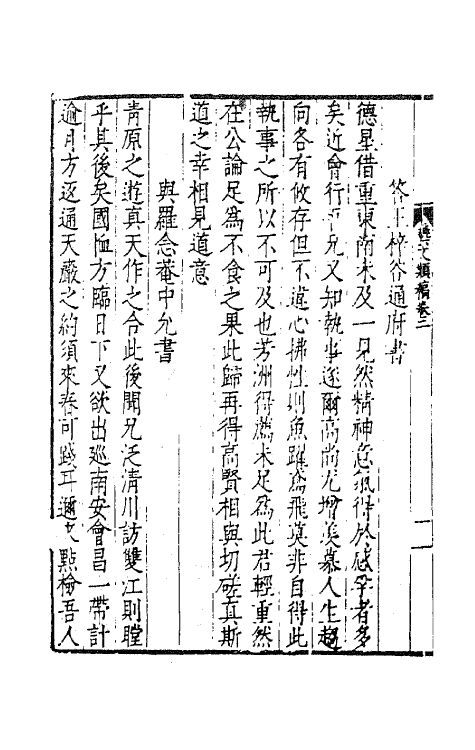 類稿卷三
答王梓谷通府書
德星借重東南未及一見然精神意氣得於感孚者多
矣近會行下兄又知執事遂爾高尚尤增羨慕人生趨
向各有攸存但不違心拂性則魚躍鳶飛莫非自得此
執事之所以不可及也芳洲得薦未足為此君輕重然
在公論足為不食之果此歸再得高賢相與切磋真斯
道之幸相見道意
與羅念菴中允書
青原之遊真天作之合此後聞兄泛清川訪雙江則瞠
乎其後矣國恤方臨日下又欲出巡南安會昌一帶計
逾月方返通天嚴之約須來春可踐耳邇點檢吾人